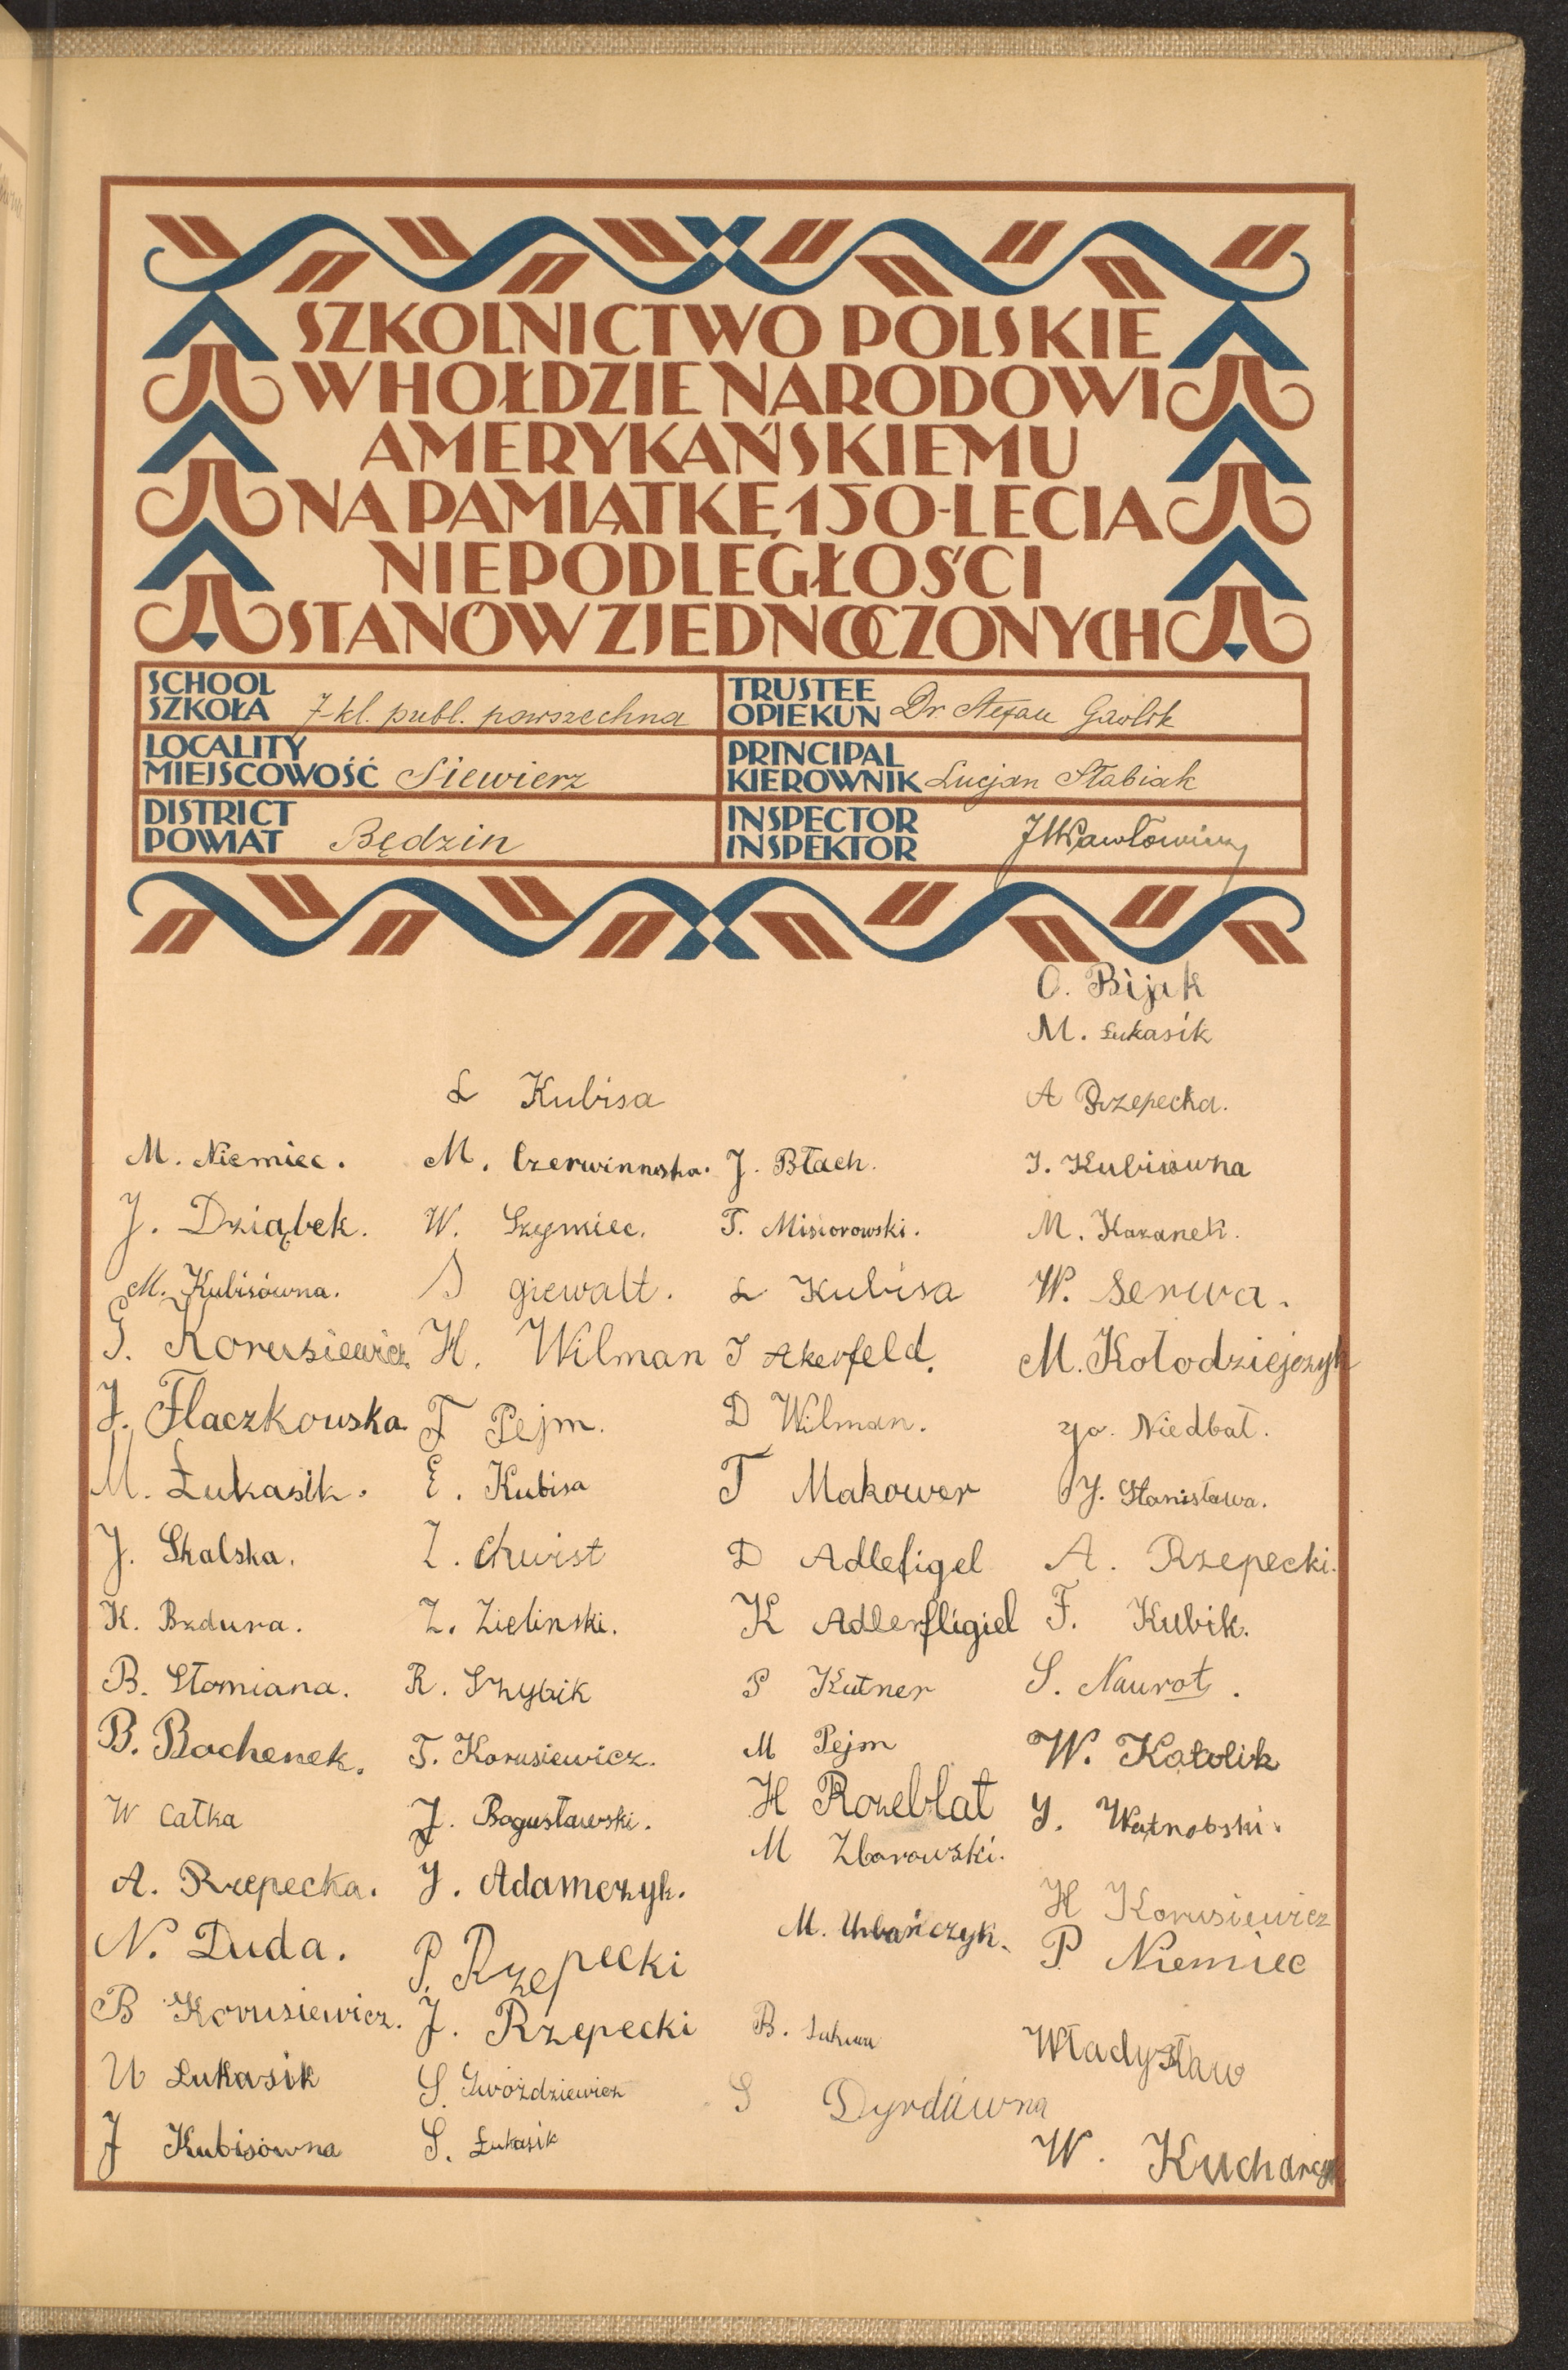 SZKOLNICTWO POLSKIE
W HOŁDZIE NARODOWI
AMERYKAŃSKIEMU
NA PAMIĄTKĘ 150-LECIA
NIEPODLEGŁOŚCI
STANÓW ZJEDNOCZONYCH
SCHOOL
SZKOŁA 7-kl. publ. powszechna
TRUSTEE
OPIEKUN Dr Stefan Gawlik
LOCALITY
MIEJSCOWOŚĆ Siewierz
PRINCIPAL
KIEROWNIK Lucjan Stabiak
DISTRICT
POWIAT Będzin
INSPECTOR
INSPEKTOR
M. Niemiec.
J. Dziąbek.
M. Kubisówna.
G. Korusiewicz
J. Flaczkowska
M. Łukasik.
J. Skalska.
K. Bzdura.
B. Słomiana.
B. Bochenek.
W Całka
A. Rzepecka.
N. Duda.
B Korusiewicz.
W Łukasik
J Kubisówna
Ł Kubisa
M. Czerwinnska.
W. Szymiec.
S giewalt.
H. Wilman
F Pejm.
E. Kubisa
Z. Chwist
Z. Zielinski.
R. Szybik
T. Korusiewicz.
J. Bogusławski.
J. Adamczyk.
P. Rzepecki
J. Rzepecki
S. Gwoździewicz
S. Łukasik
J. Błach.
T. Misiorowski.
Ł Kubisa
J Akerfeld.
D Wilman.
T Makower
D Adlefigel
K Adlerfligiel
P Kutner
M Pejm
H Rozeblat
M Zborowski.
M. Urbańczyk.
B.
S Dyrdówna
O. Bijak
M. Łukasik
A Rzepecka.
J. Kubisówna
M. Kazanek.
W. Serwa.
M. Kołodziejczyk
Niedbał.
J. Stanisława.
A. Rzepecki.
F. Kubik.
S. Naurot.
W. Katolik
J. Watnobski.
H Korusiewicz
P. Niemiec
Władysław
W. Kucharczyk